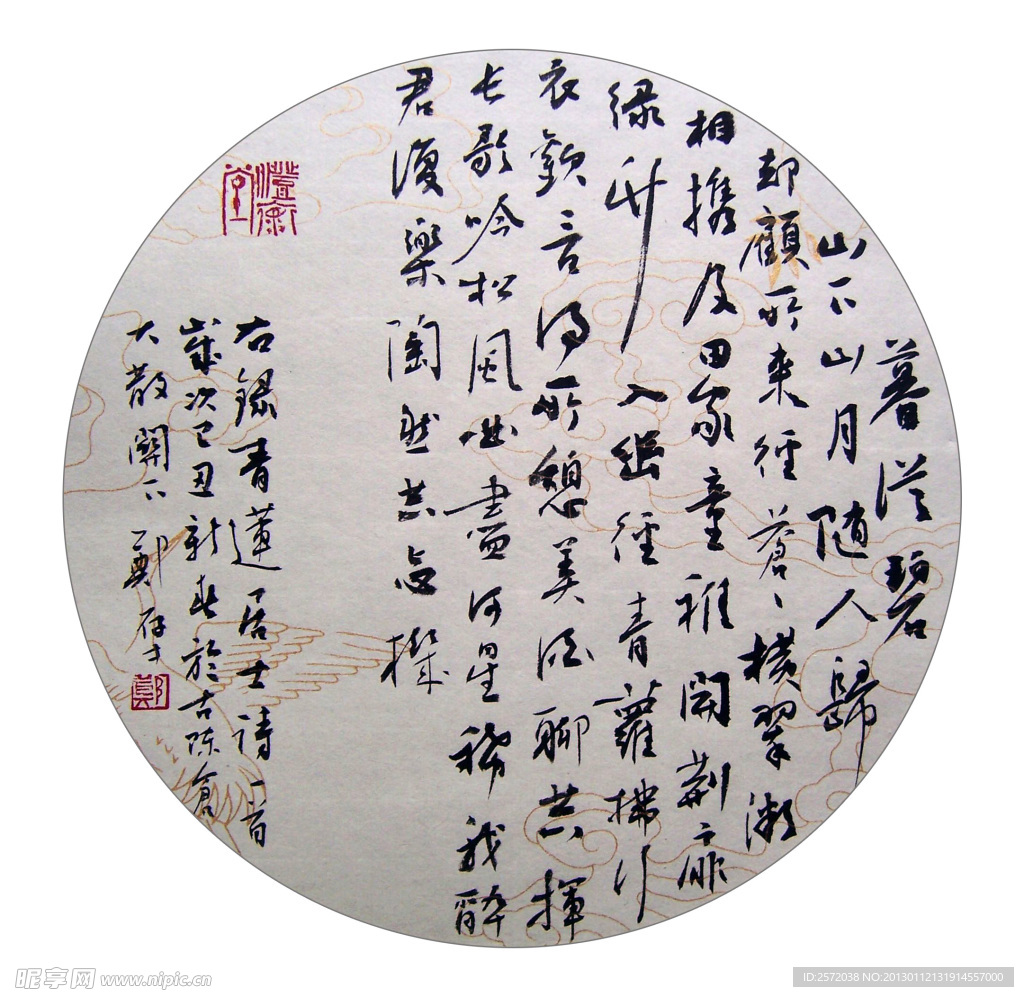 暮從碧
山下山月随人歸
却顧所來徑蒼々橫翠微
相携及田家童稚開荆扉
绿竹入幽徑青蘿拂行
衣歡言得所憩美酒聊共揮
长歌吟松風曲盡河星稀我醉
君復樂陶然共忘機
右録青蓮居士詩一首
歲次己丑新春於古陳倉
大散關下鄭
鄭
昵享网 www.nipic.cn
ID:2572038 NO:20130112131914557000